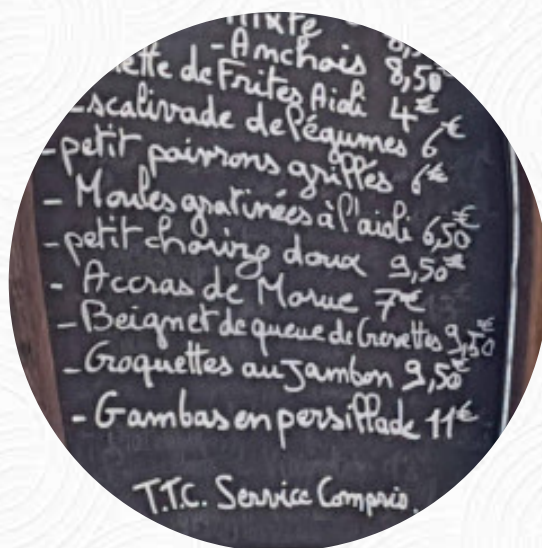 mixte
-Anchois 8,50€
de Frites Aioli 4€
scalivade de légumes 6€
-petit poivrons grillés 6€
- Moules gratinées à l'aioli 6,50€
-petit chorizo doux 9,50€
- Accras de Morue 7€
- Beignet de queue de Crevettes 9,50€
-Croquettes au Jambon 9,50€
- Gambas en persillade 11€
T.T.C. Service Compris.